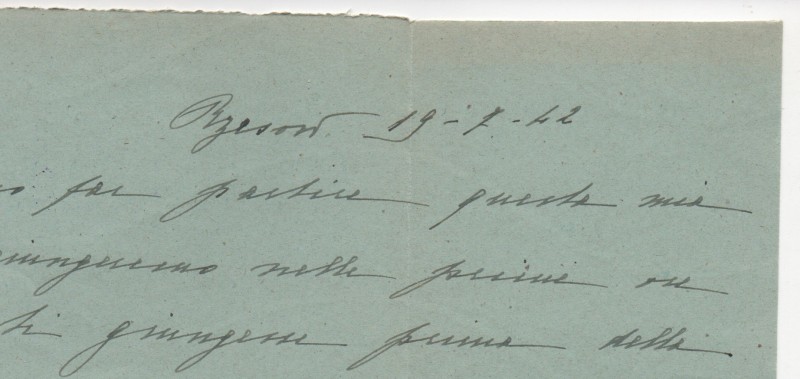 Rzesow 19-7-42
far partire questa mia
giungeremo nelle prime ore
ti giungesse prima della